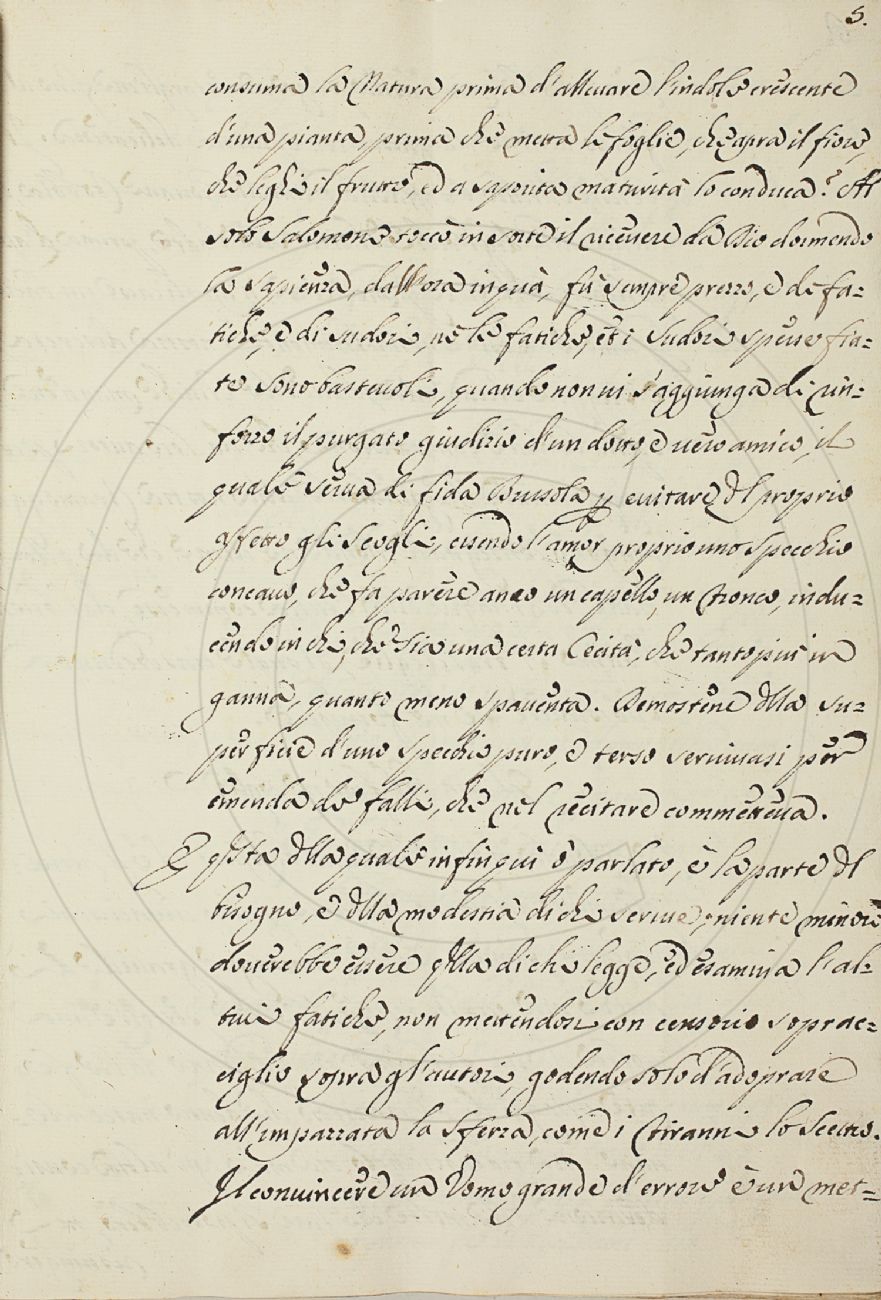 5.
consuma la Natura prima d'alleuare l'indole crescente
d'una pianta, prima che metta le foglie, che apra il fiore,
che leghi il frutto, ed a saporita maturità lo conduca? Al
solo Salomone toccò in sorte il riceuere da Dio dormendo
la sapienza, dall'ora in quà, fù sempre prezzo, e de fa=
tiche, e di sudori, ne le fatiche, et i sudori spesse fia=
te sono bastevoli, quando non ui s'aggiunga di rin=
forzo il purgato giudizio d'un dotto, e uero amico, il
quale serua di fida Bussola p euitare dl proprio
affetto gli scogli, essendo l'amor proprio uno specchio
concauo, che fa parere anco un capello, un tronco, indu=
cendo in chi, che sia una certa Cecità, che tanto più in
ganna, quanto meno spauenta. Demostene dlla su=
perficie d'uno specchio puro, e terso seruiuasi per
emenda de falli, che nel recitare commetteua.
E qsta dlla quale infin quì ò parlato, è la parte dl
bisogno, e dlla modestia di chi scriue, niente minore
douerebbe essere qlla di chi legge, ed esamina l'al=
trui fatiche, non mettendosi con censorio soprac=
ciglio sopra gl'autori, godendo solo d'adoprare
all'impazzata la sferza, come i Tiranni lo scettro.
Il conuincere un Uomo grande d'errore è un met=